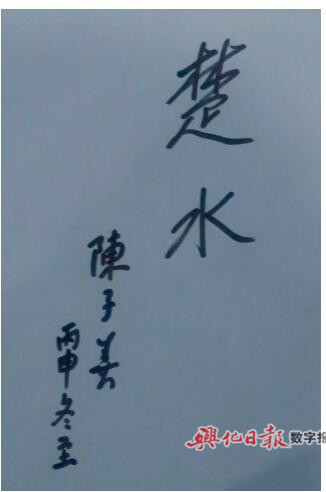 楚水
陳子善
丙申冬至
興化日報数字报